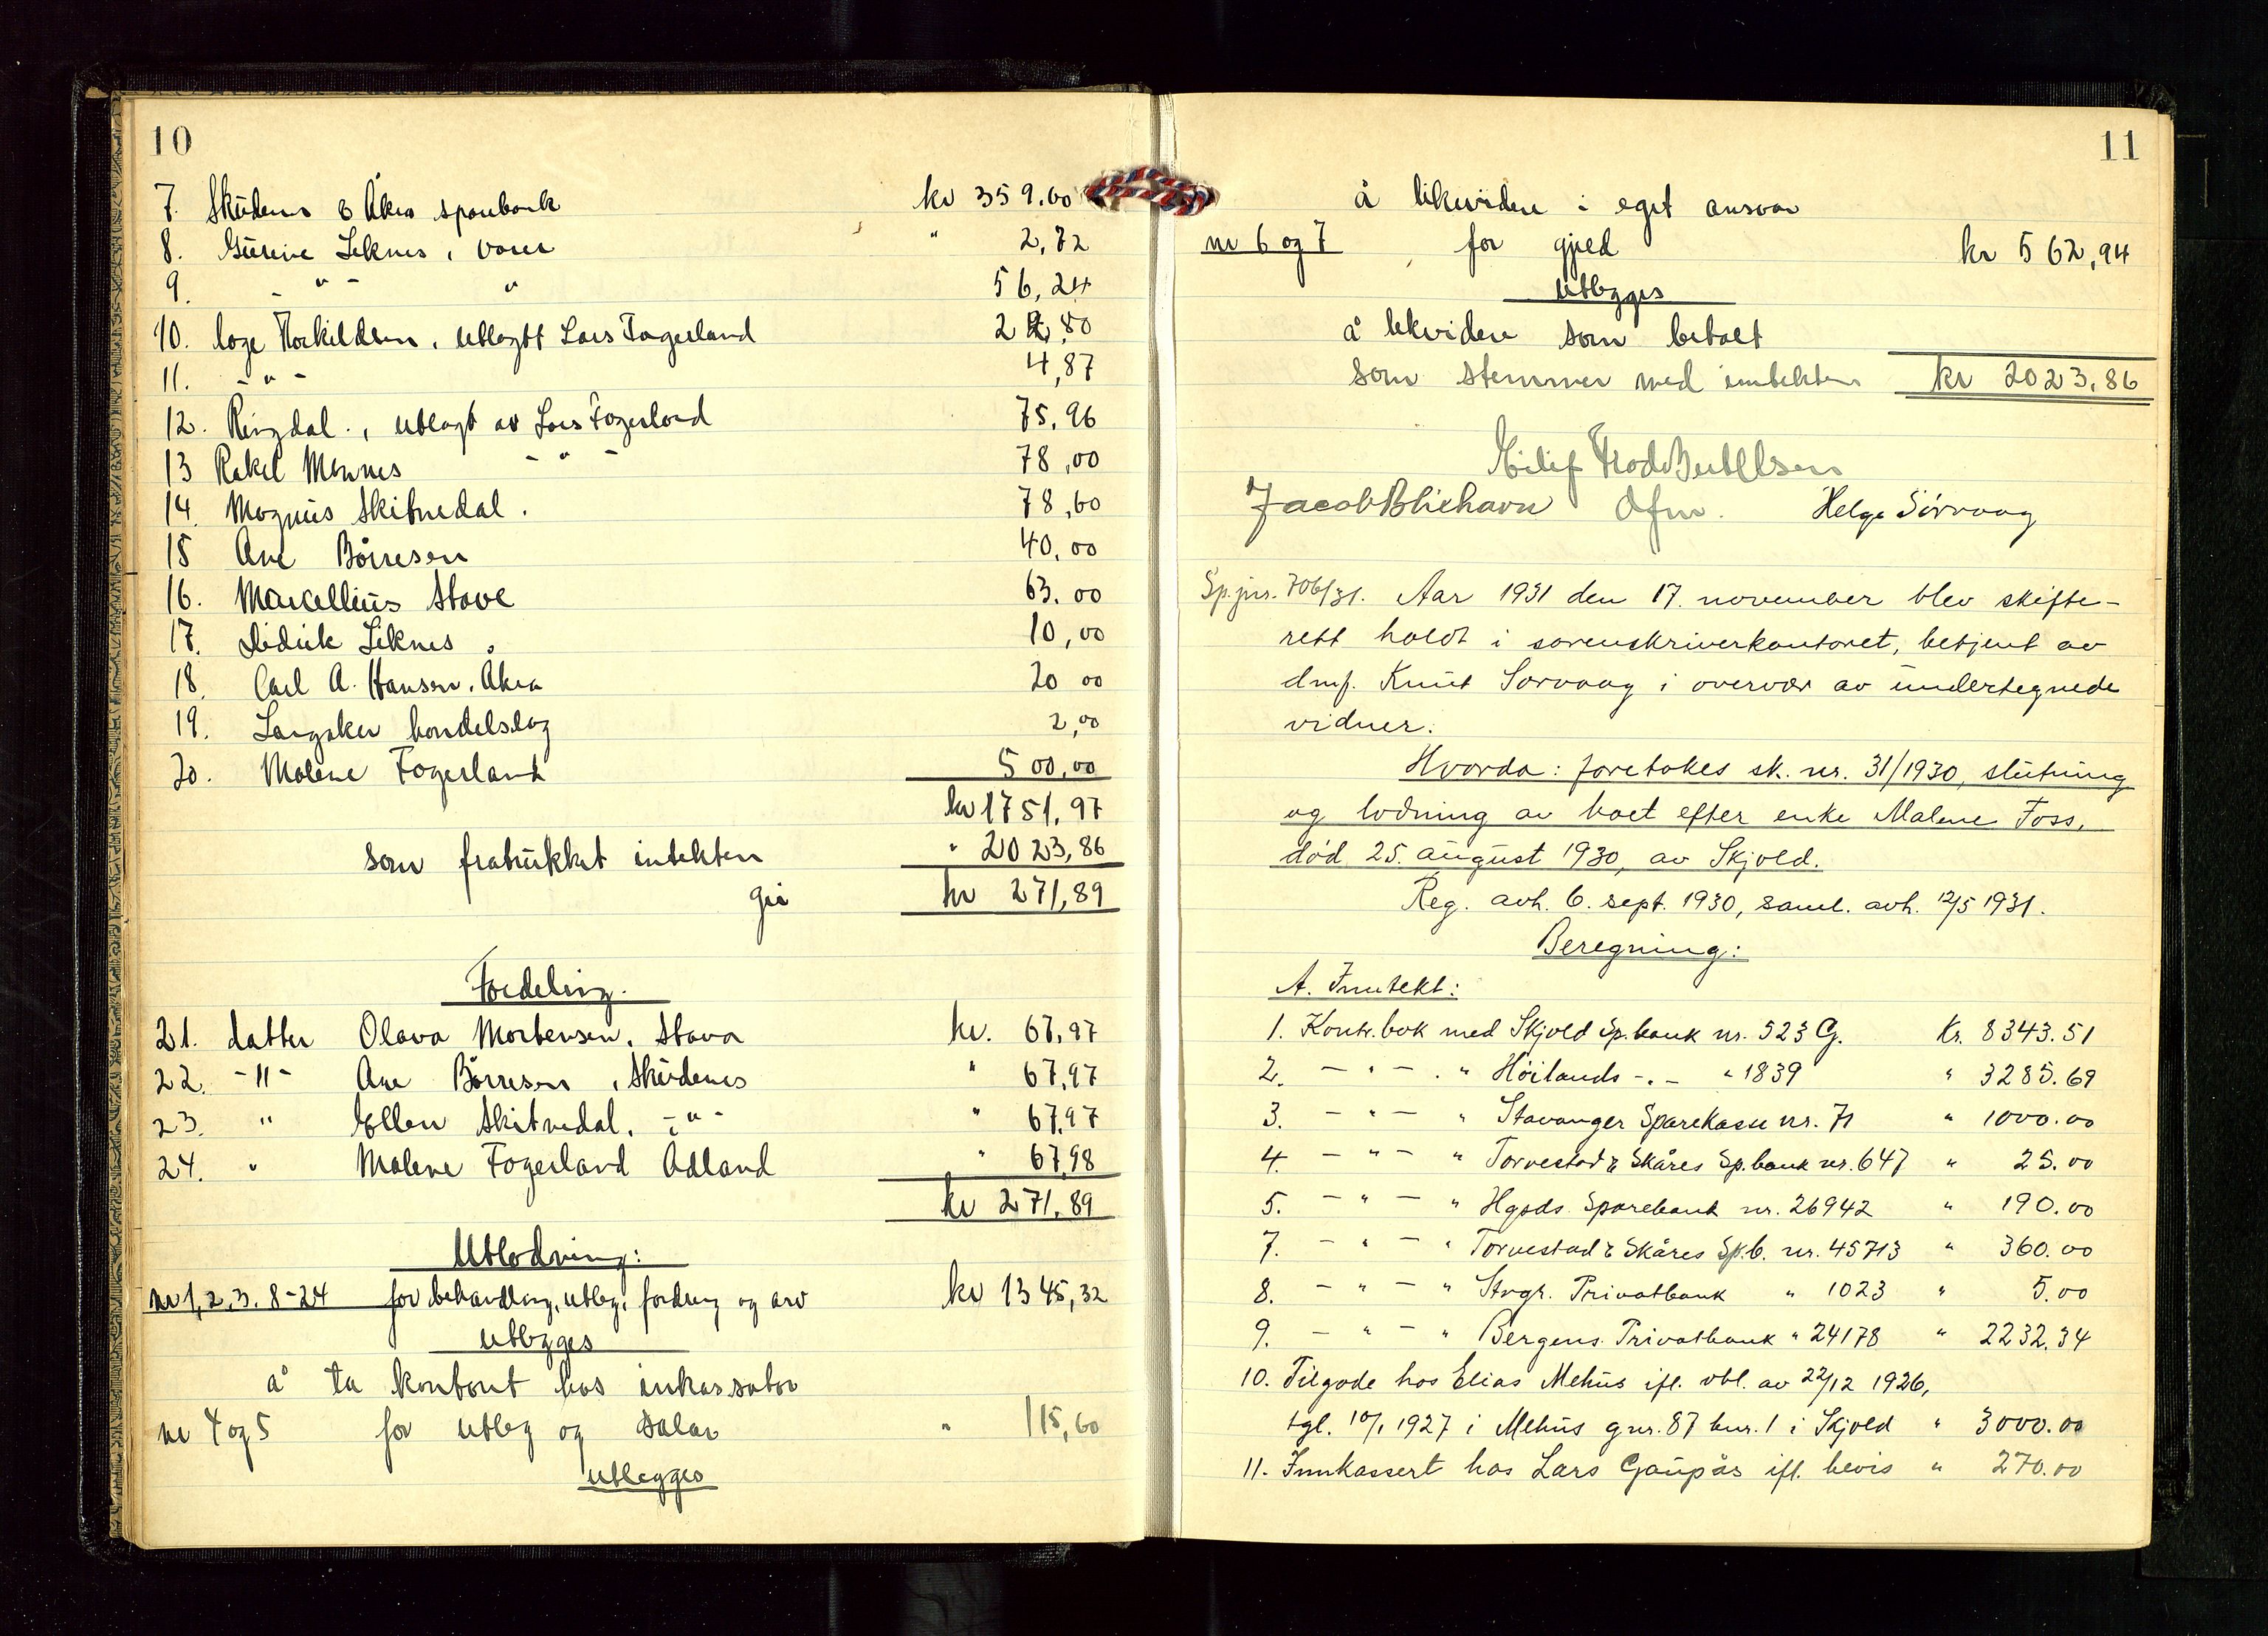 10
7. Skudenes & Åkra sparebank kr 359.00
8. Gurine Liknes, varer " 2,72
9. - " - " 56,24
10. lage Torkildsen, utlagt Lars Fagerland 22,80
11. - " - 4,87
12. Ringdal., utlagt av Lars Fagerland 75,96
13 Rakel Mannes - " - 78,00
14. Magnus Skitnedal. 78,60
15 Ane Börresen 40,00
16. Marcellius Stave 63.00
17. Didrik Liknes. 10,00
18. Carl A. Hansen, Åkra 20 00
19. Langåker handelslag 2,00
20. Malene Fagerland 500,00
kr 1751,97
som fratrukket intekten " 2023,86
gir kr 271,89
Fordeling.
21. datter Olava Mortensen, Stava kr. 67,97
22. -"- Ane Börresen, Skudenes " 67,97
23. " Ellen Skitnedal, -"- " 67,97
24. " Malene Fagerland Ådland " 67,98
kr 271,89
Utlodning:
nr 1,2,3, 8-24 for behandling, utleg, fordring og arv kr 1345,32
utlegges
å ta kontant hos inkassator
nr 4 og 5 for utleg og salær " 115,60
utlegges
11
å likvidere i eget ansvar
nr 6 og 7 for gjeld kr 562,94
utlegges
å likvidere som betalt
som stemmer med inntekten kr 2023,86
Eilif Trod Bertelsen
Jacob Bliehavn Ofm. Helge Sörvaag
Sp.jnr. 706/31. Aar 1931 den 17. november blev skifte-
rett holdt i sorenskriverkontoret, betjent av
dmf. Knut Sørvaag i overvær av undertegnede
vidner.
Hvorda: foretokes sk. nr. 31/1930, slutning
og lodning av boet efter enke Malene Foss,
död 25. august 1930, av Skjold.
Reg. avh. 6. sept. 1930, saml. avh. 12/5 1931.
Beregning:
A. Inntekt:
1. Kontr.bok med Skjold Sp.bank nr. 523 G. Kr. 8343.51
2. - " - . " Höilands -.- " 1839 " 3285.69
3. - " - " Stavanger Sparekasse nr. 71 " 1000.00
4. - " - " Torvestad & Skåres Sp.bank nr. 647 " 25.00
5. - " - " Hgsds. Sparebank nr. 26942 " 190.00
7. - " - " Torvestad & Skåres Sp.b. nr. 45713 " 360.00
8. - " - " Stvgr. Privatbank " 1023 " 5.00
9. - " - " Bergens Privatbank " 24178 " 2232.34
10. Tilgode hos Elias Mehus ifl. obl. av 22/12 1926,
tgl. 10/1 1927 i Mehus gnr. 87 bnr. 1 i Skjold " 3000.00
11. Innkassert hos Lars Gaupås ifl. bevis " 270.00